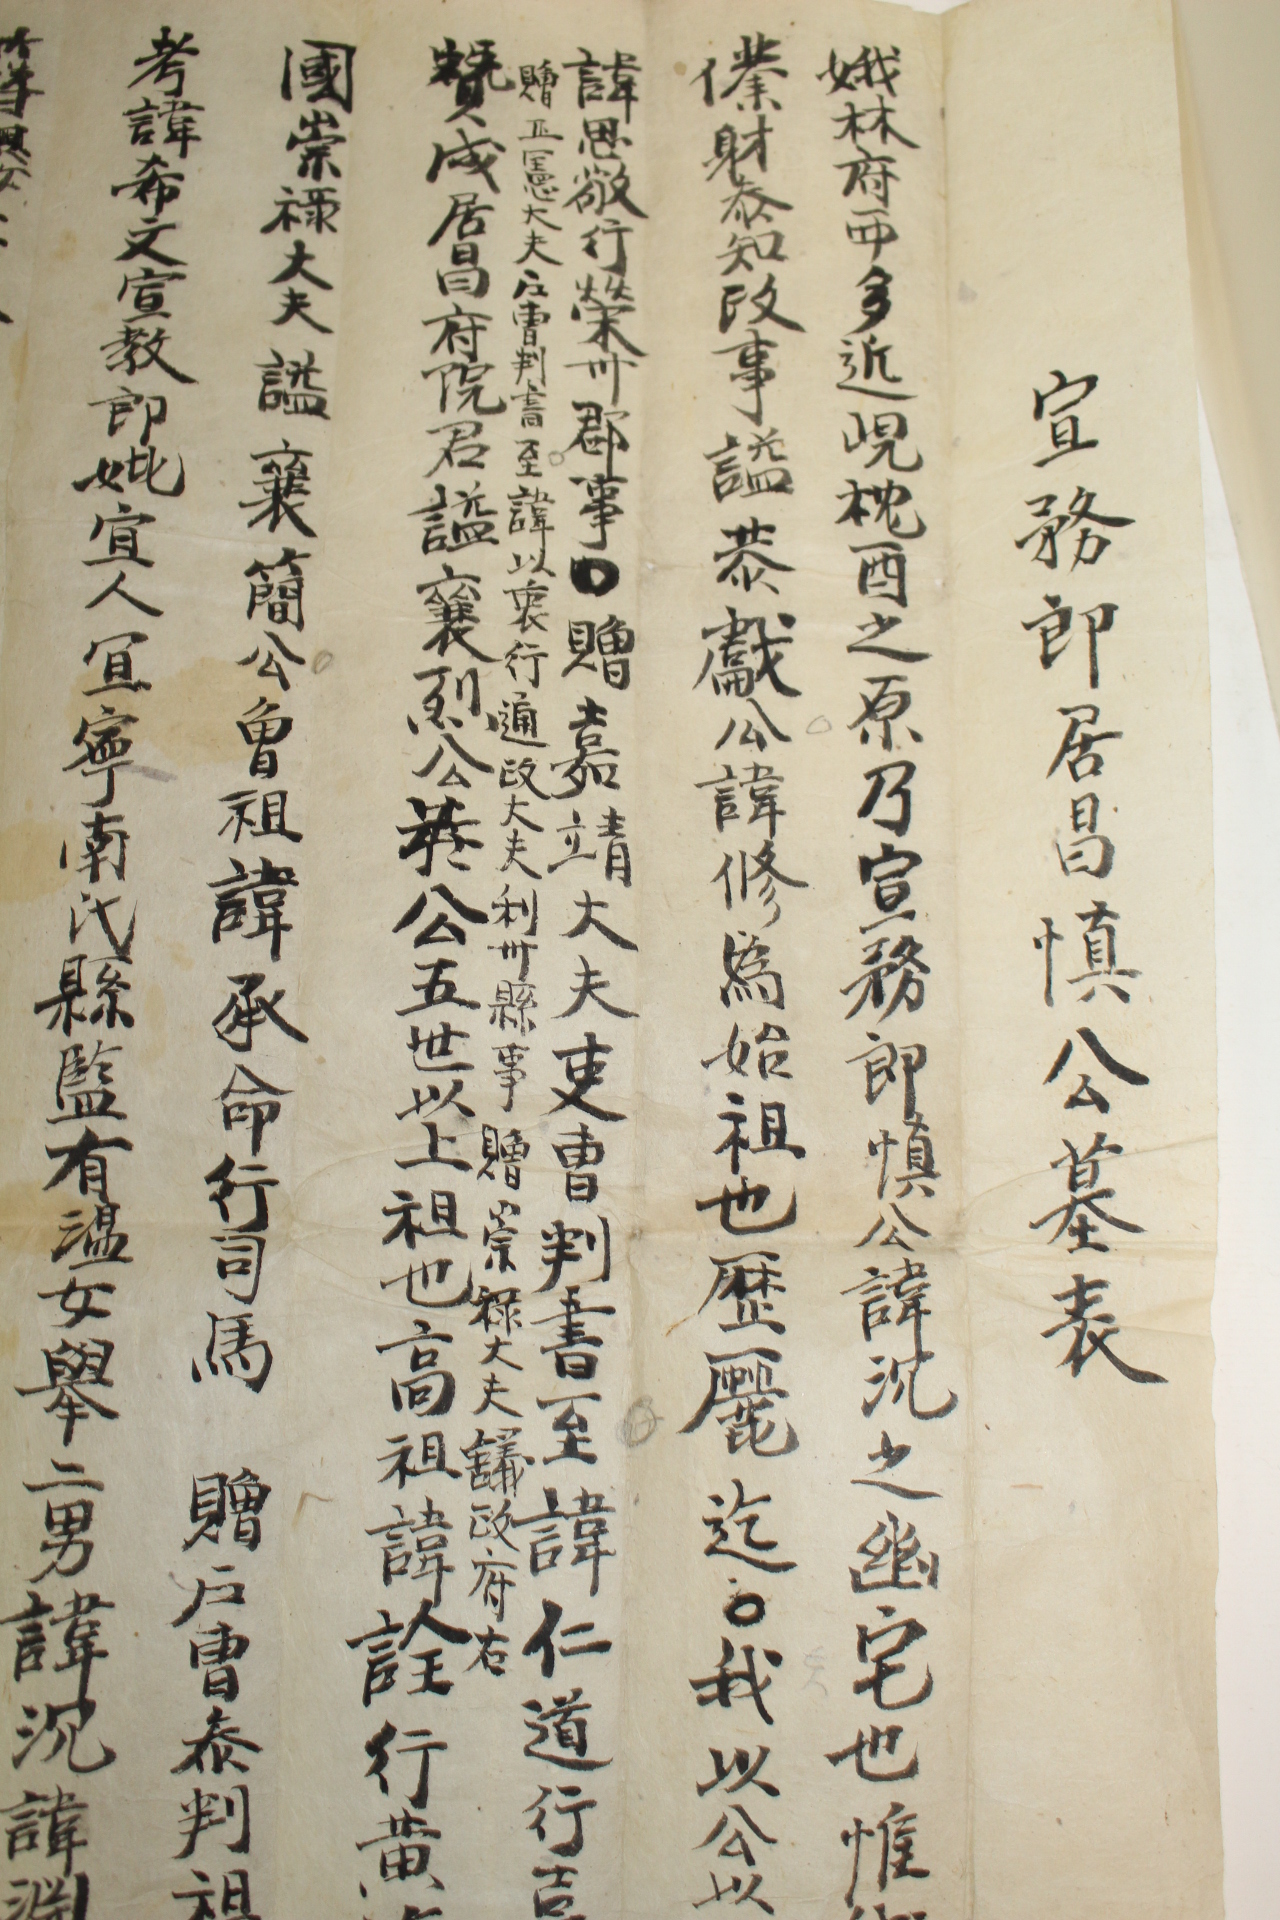 宣務郎居昌愼公墓表
娥林府西多近峴枕酉之原乃宣務郎愼公諱沉之幽宅也惟
僕射叅知政事謚恭獻公諱修爲始祖也歷麗迄〇我以公以
諱思敬行榮州郡事〇贈嘉靖大夫吏曹判書至諱仁道行吉
贈正憲大夫戶曹判書至諱以衷行通政大夫利州縣事 贈崇祿大夫議政府右
贊成居昌府院君謚襄烈公於公五世以上祖也高祖諱詮行黃
國崇祿大夫謚襄簡公曾祖諱承命行司馬 贈戶曹叅判祖
考諱希文宣敎郎妣宜人宜寧南氏縣監有溫女擧二男諱沉諱淵